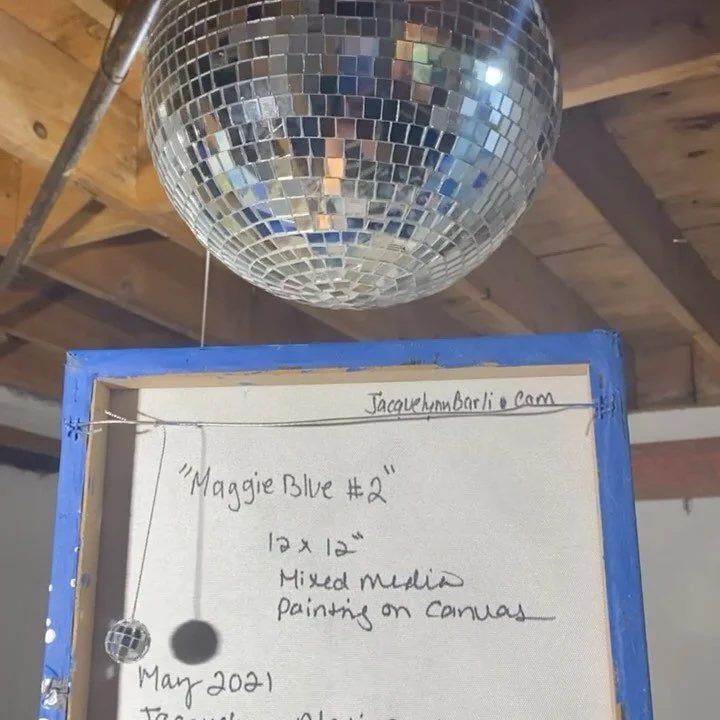 JacquelynnBarli.com
"Maggie Blue #2"
12 x 12"
Mixed media
Painting on Canvas
May 2021